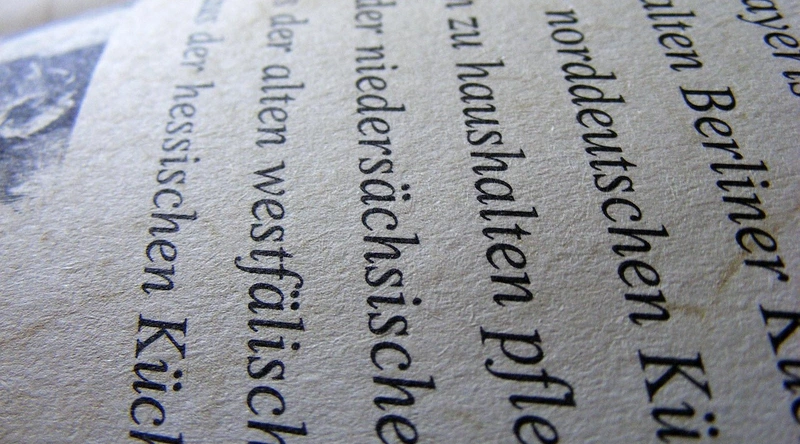 alten Berliner Küc
norddeutschen Kü
n zu haushalten pfle
der niedersächsische
s der alten westfälisch
aus der hessischen Küch